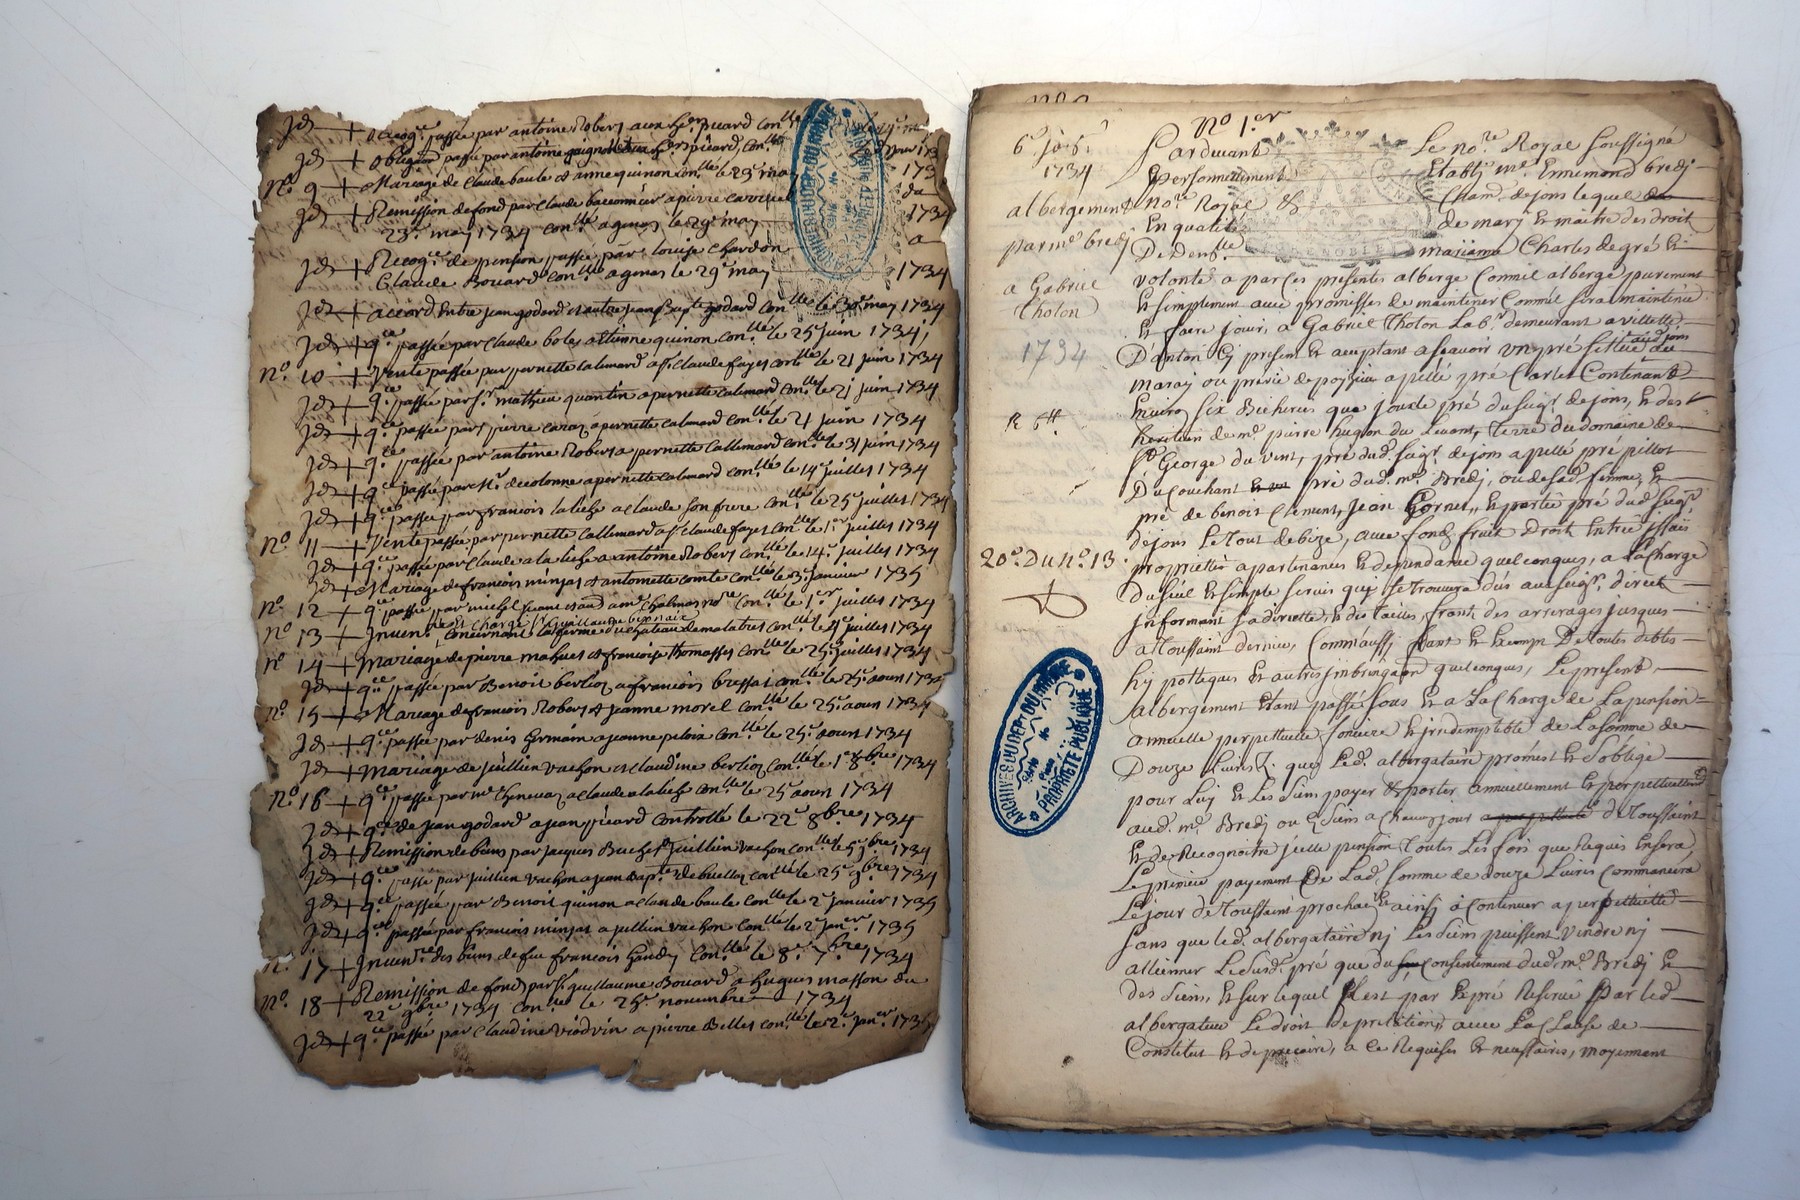 Jd + recog.ce passée par antoine Robert aux h.ers picard con.llé
Jd + obligaôn passée par antoine aux h.ers picard, con.llé
N.o 9 + Mariage de Claude baule et anne quinon con.llé le 23e may 173
Jd + Remission de fond par Claude baconnier a pierre 1734
23e may 1734 con.llé a genas le 29e may
Jd + Recog.ce de pension passée par louise Chardon a
Claude Bouard con.llé a genas le 29e may 1734
Jd + accord Entre Jean godard et autre Jean Bap.te godard con.llé le 30e may 1734
Jd + q.ce passée par Claude boles a Etienne quinon con.llé le 25e Juin 1734
N.o 10 + Vente passée par pernette calemard a s.r Claude fayet con.llé le 21 Juin 1734
Jd + q.ce passée par s.r mathieu quantin a pernette calemard con.llé le 21 Juin 1734
Jd + q.ce passée par pierre a pernette calemard con.llé le 21 Juin 1734
Jd + q.ce passée par antoine Robert a pernette Callemard con.llé le 31 Juin 1734
Jd + q.ce passée par decolonne a pernette Calemard con.llé le 14e Juillet 1734
Jd + q.ce passée par francois a Claude son frere con.llé le 25e Juillet 1734
N.o 11 + Vente passée par pernette Callemard a s.r Claude fayet con.llé le 1er Juillet 1734
Jd + q.ce passée par Claude a antoine Robert con.llé le 14e Juillet 1734
Jd + Mariage de francois minjat et antoinette comte con.llé le 3e Janvier 1735
N.o 12 + q.ce passée par michel a m.e Chalmas no.re con.llé le 1er Juillet 1734
N.o 13 + Inven.re concernant la ferme du chateau de malatret con.llé le 4e Juillet 1734
N.o 14 + Mariage de pierre mahuet et francoise Thomasset con.llé le 25e Juillet 1734
Jd + q.ce passée par Benoit berlioz a francois bressat con.llé le 25e aoust 1734
N.o 15 + Mariage de francois Robert et Jeanne morel con.llé le 25e aoust 1734
Jd + q.ce passée par denis Germain a Jeanne con.llé le 25e aoust 1734
Jd + Mariage de Jullien vachon et Claudine berlioz con.llé le 1er 8bre 1734
N.o 16 + q.ce passée par m.e a Claude con.llé le 25 aoust 1734
Jd + q.ce de Jean godard a Jean picard controllé le 22e 8bre 1734
Jd + Remission de biens par Jacques Buchet a Juillien vachon con.llé le 5 9bre 1734
Jd + q.ce passée par Juillien vachon a Jean bap.te con.llé le 25e 9bre 1734
Jd + q.ce passée par Benoit quinon a Claude baule con.llé le 2e Janvier 1735
Jd + q.ce passée par francois minjat a Jullien vachon con.llé le 2e Jan.er 1735
N.o 17 + Inven.re des biens de feu francois Gandy con.llé le 8e 7bre 1734
N.o 18 + Remission de fond par s.r guillaume Bouard a hugues masson du
22e 9bre 1734 con.llé le 25e novembre 1734
Jd + q.ce passée par Claudine a pierre Bellet con.llé le 2e Jan.er 1735
ARCHIVES DU DÉP.T DU RHÔNE
PROPRIÉTÉ PUBLIQUE
N.o 1.er
6e
1734
albergement
par m.e bredy
a Gabriel
Tholon
1734
R 6.tt
20e Du N.o 13.
Pardevant Le no.re Royal soussigné
personnellement Etably m.e Ennemond bredy
no.re Royal & Cham. de jons lequel
En qualité de mary & maitre des droit
De Den.lle marianne Charles de gré &
volonté a par ces presentes albergé Comme il alberge purement
& simplement avec promesses de maintenir Comme il sera maintenir
& faire jouir, a Gabriel Tholon Lab.r demeurant a villette
D'anton Cy present & aceptant a scavoir un pré scittué aud. jons
maray ou prerie de apellé pré Charles Contenant
Environ six Bicherées que jouxte pré du seig.r de jons, & des
heritiers de m.e pierre hugon du Levant, Terre du domaine de
S.t George du vent, pré dud. seig.r de jons apellé pré pillot
Du couchant pré dud. m.e Bredy, ou de sad. femme, &
pré de benoit Clement, Jean Gornet, & partie pré dud. seig.r
de jons Le Tout de bize, avec fond, fruit Droit Entrée Issüe
proprietés apartenances & dependance quelconques, a La Charge
Du seul & simple servis qui se trouvera dûs au seig.r direct
informant sa directte, & des tailles, franc des arrerages jusques
a Toussaint dernier, Comme aussy franc & Exempt De toutes debtes
hypotteques & autres quelconques, Le present
albergement Etant passé sous & a La Charge de La pension
annuelle perpettuelle fonciere & jrredimptible de La somme de
Douze Livres que Led. albergataire promest & s'oblige
pour Luy & Les siens payer & porter annuellement & perpettuellem.t
aud. m.e Bredy ou siens a chacun jour de Toussaint
& de Recognoitre jcelle pension Toutes Les fois que Requis En sera
Le premier payement De Lad. somme de douze Livres Commancera
Le jour de Toussaint prochain & ainsy a Continuer a perpettuitté
sans que led. albergataire ny Les siens puissent vendre ny
alienner Le susd. pré que du Consentement dud. m.e Bredy &
des siens, & sur lequel Il est par Exprés Reservé par led.
albergateur Le droit de prelation, avec La Clause de
Constitut & de precaire, a ce Requises & necessaires, moyennant
ARCHIVES DU DÉP.T DU RHÔNE
PROPRIÉTÉ PUBLIQUE